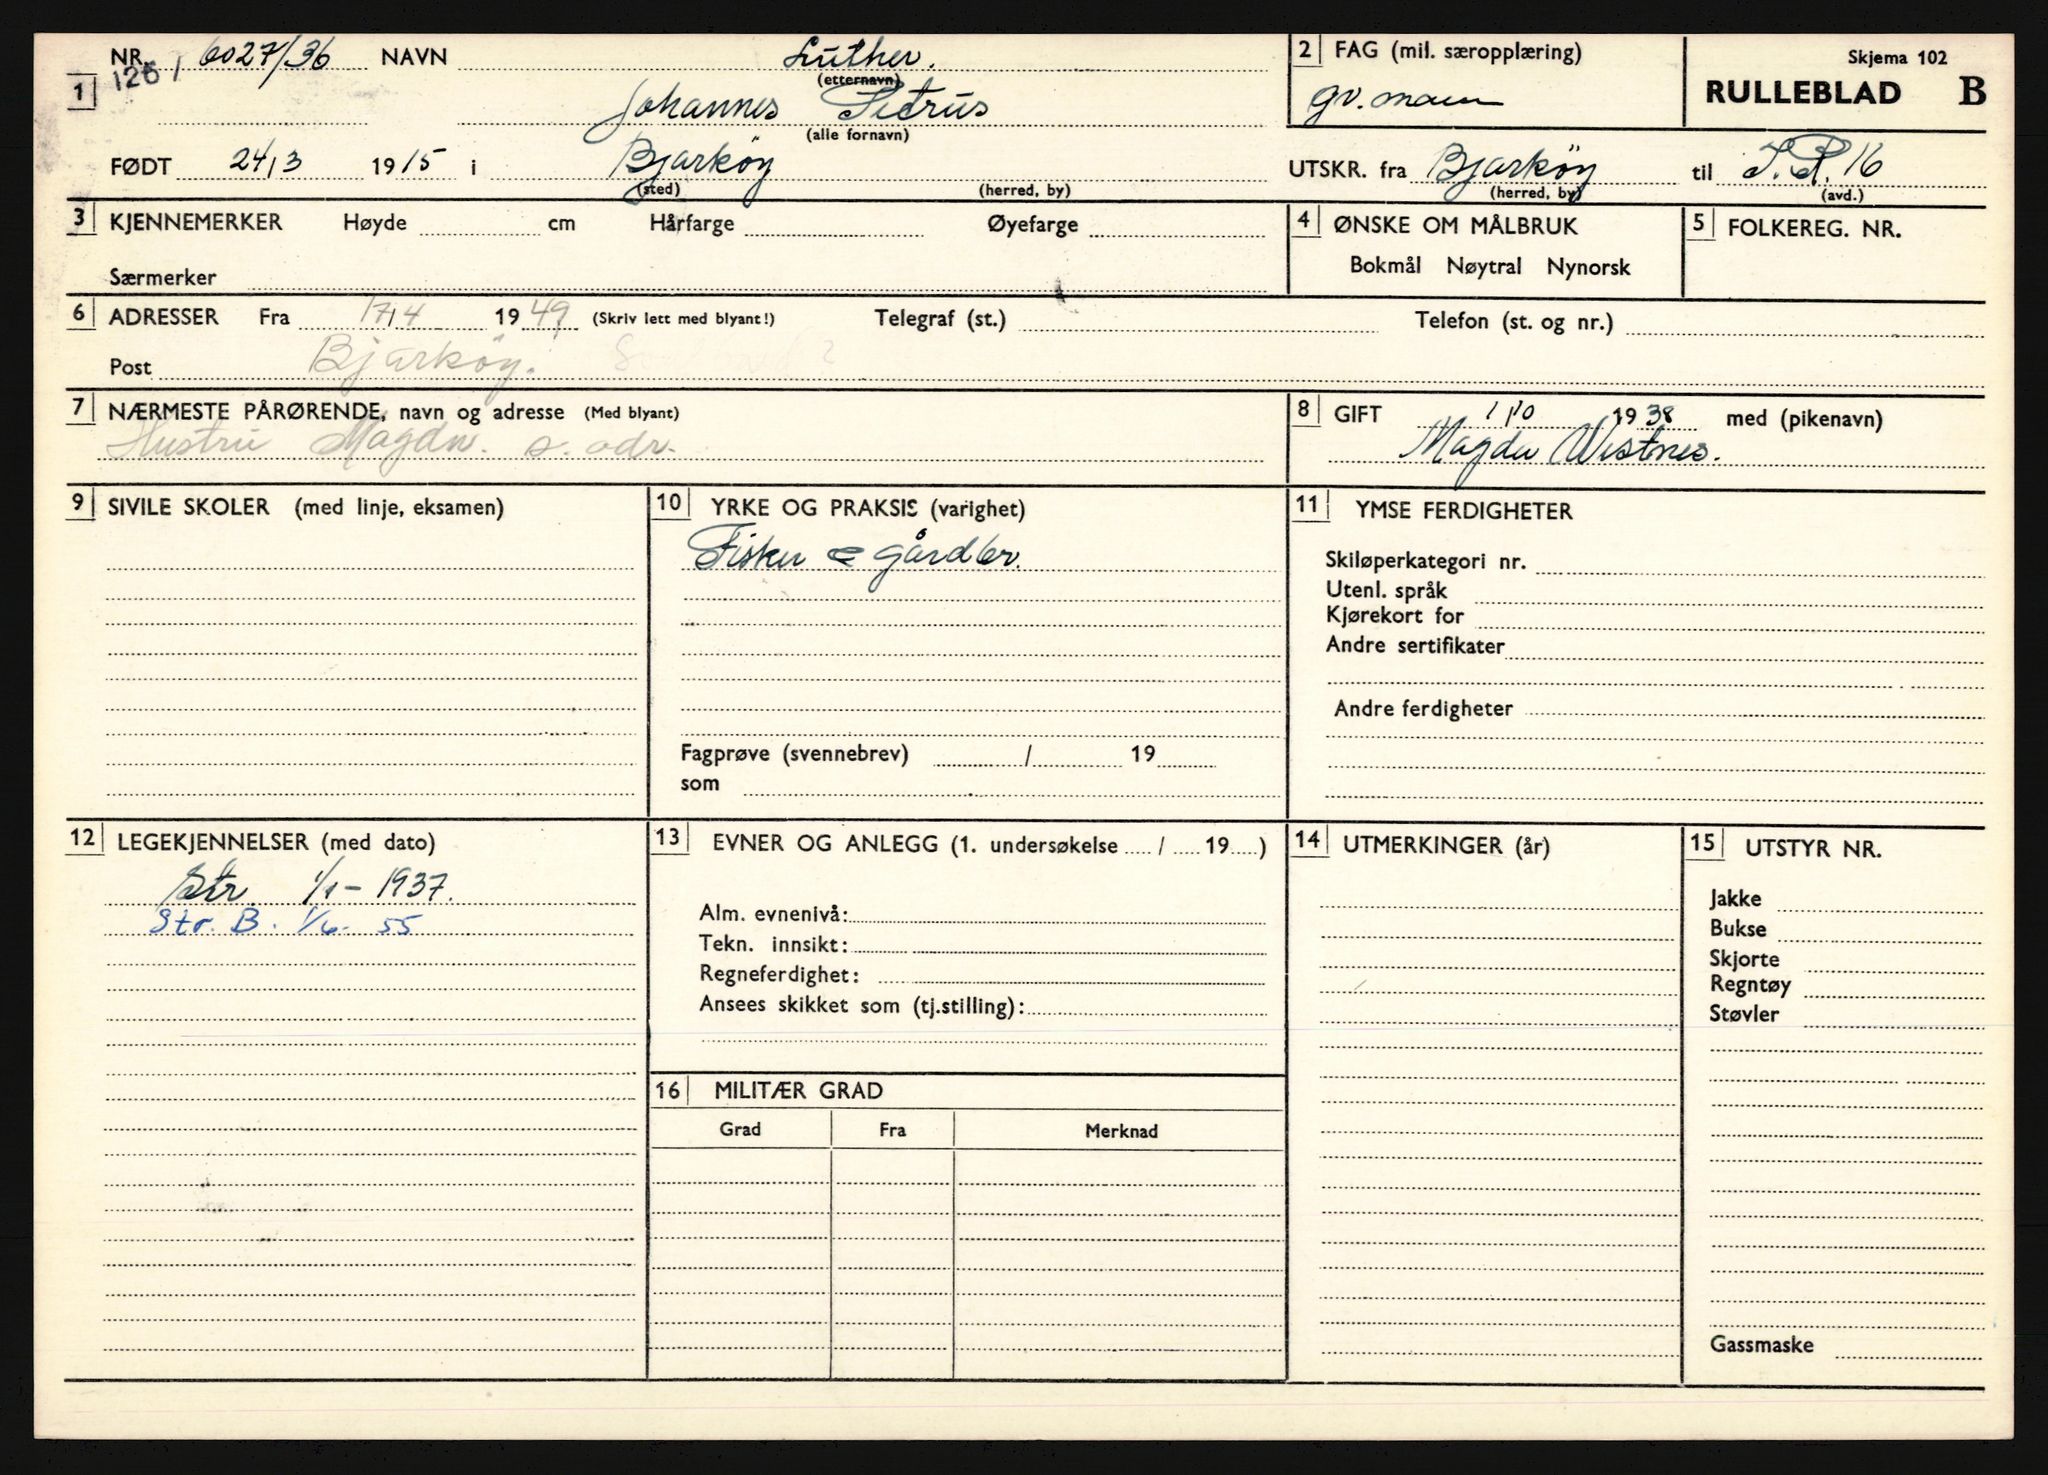 NR. 6027/36 NAVN Luther.
1261
(etternavn)
1
Johannes Petrus
(alle fornavn)
FØDT 24/3 1915 i Bjarkøy
(sted) (herred, by)
2 FAG (mil. særopplæring)
gv. mann
Skjema 102
RULLEBLAD B
UTSKR. fra Bjarkøy til I.R. 16
(herred, by) (avd.)
3 KJENNEMERKER Høyde cm Hårfarge Øyefarge
Særmerker
4 ØNSKE OM MÅLBRUK
Bokmål Nøytral Nynorsk
5 FOLKEREG. NR.
6 ADRESSER Fra 17/4 1949 (Skriv lett med blyant!) Telegraf (st.) Telefon (st. og nr.)
Post Bjarkøy.
7 NÆRMESTE PÅRØRENDE, navn og adresse (Med blyant)
Hustru Magda s. adr.
8 GIFT 1/10 1938 med (pikenavn)
Magda Vestnes.
9 SIVILE SKOLER (med linje, eksamen)
10 YRKE OG PRAKSIS (varighet)
Fisker & gårdbr.
Fagprøve (svennebrev) / 19
som
11 YMSE FERDIGHETER
Skiløperkategori nr.
Utenl. språk
Kjørekort for
Andre sertifikater
Andre ferdigheter
12 LEGEKJENNELSER (med dato)
Str. 1/1-1937.
Str. B. 1/6. 55
13 EVNER OG ANLEGG (1. undersøkelse / 19 )
Alm. evnenivå:
Tekn. innsikt:
Regneferdighet:
Ansees skikket som (tj.stilling):
16 MILITÆR GRAD
Grad Fra Merknad
14 UTMERKINGER (år)
15 UTSTYR NR.
Jakke
Bukse
Skjorte
Regntøy
Støvler
Gassmaske